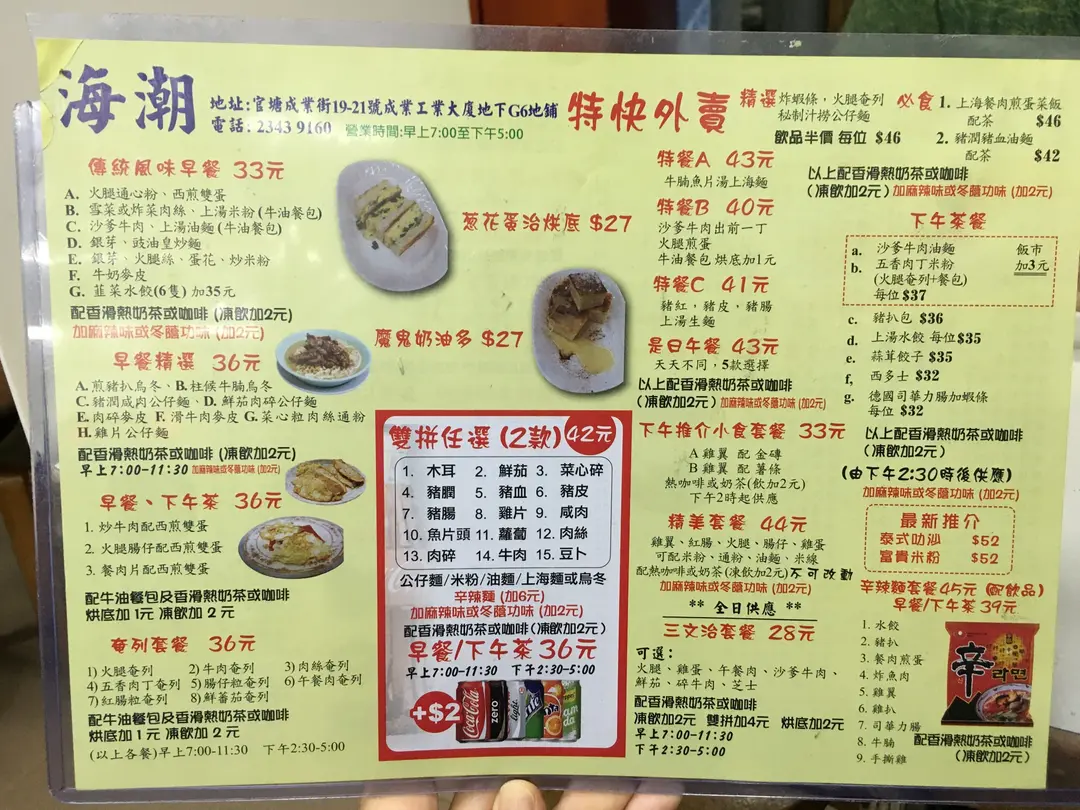 海潮
地址:官塘成業街19-21號成業工業大廈地下G6地鋪
電話: 2343 9160 營業時間:早上7:00至下午5:00
特快外賣
精選 炸蝦條，火腿奄列
秘制汁撈公仔麵
飲品半價 每位 $46
必食 1. 上海餐肉煎蛋菜飯
配茶 $46
2. 豬潤豬血油麵
配茶 $42
以上配香滑熱奶茶或咖啡
(凍飲加2元) 加麻辣味或冬蔭功味 (加2元)
傳統風味早餐 33元
A. 火腿通心粉、西煎雙蛋
B. 雪菜或炸菜肉絲、上湯米粉 (牛油餐包)
C. 沙爹牛肉、上湯油麵 (牛油餐包)
D. 銀芽、豉油皇炒麵
E. 銀芽、火腿絲、蛋花、炒米粉
F. 牛奶麥皮
G. 韮菜水餃(6隻) 加35元
配香滑熱奶茶或咖啡 (凍飲加2元)
加麻辣味或冬蔭功味 (加2元)
早餐精選 36元
A.煎豬扒烏冬、B.柱候牛腩烏冬
C.豬潤咸肉公仔麵、D. 鮮茄肉碎公仔麵
E.肉碎麥皮 F. 滑牛肉麥皮 G.菜心粒肉絲通粉
H.雞片公仔麵
配香滑熱奶茶或咖啡 (凍飲加2元)
早上7:00-11:30 加麻辣味或冬蔭功味 (加2元)
早餐、下午茶 36元
1. 炒牛肉配西煎雙蛋
2. 火腿腸仔配西煎雙蛋
3. 餐肉片配西煎雙蛋
配牛油餐包及香滑熱奶茶或咖啡
烘底加1元 凍飲加 2 元
奄列套餐 36元
1)火腿奄列 2)牛肉奄列 3)肉絲奄列
4)五香肉丁奄列 5)腸仔粒奄列 6)午餐肉奄列
7)紅腸粒奄列 8)鮮蕃茄奄列
配牛油餐包及香滑熱奶茶或咖啡
烘底加1元 凍飲加 2 元
(以上各餐)早上7:00-11:30 下午2:30-5:00
葱花蛋治烘底 $27
魔鬼奶油多 $27
雙拼任選 (2款) 42元
1. 木耳 2. 鮮茄 3. 菜心碎
4. 豬膶 5. 豬血 6. 豬皮
7. 豬腸 8. 雞片 9. 咸肉
10. 魚片頭 11. 蘿蔔 12. 肉絲
13. 肉碎 14. 牛肉 15. 豆卜
公仔麵/米粉/油麵/上海麵或烏冬
辛辣麵 (加6元)
加麻辣味或冬蔭功味 (加2元)
配香滑熱奶茶或咖啡(凍飲加2元)
早餐/下午茶 36元
早上7:00-11:30 下午2:30-5:00
+$2
Coca-Cola
zero
light
特餐A 43元
牛腩魚片湯上海麵
特餐B 40元
沙爹牛肉出前一丁
火腿煎蛋
牛油餐包 烘底加1元
特餐C 41元
豬紅，豬皮，豬腸
上湯生麵
是日午餐 43元
天天不同，5款選擇
以上配香滑熱奶茶或咖啡
(凍飲加2元) 加麻辣味或冬蔭功味 (加2元)
下午推介小食套餐 33元
A 雞翼 配 金磚
B 雞翼 配 薯條
熱咖啡或奶茶(飲加2元)
下午2時起供應
精美套餐 44元
雞翼、紅腸、火腿、腸仔、雞蛋
可配米粉、通粉、油麵、米線
配熱咖啡或奶茶(凍飲加2元)不可改動
加麻辣味或冬蔭功味 (加2元)
** 全日供應 **
三文治套餐 28元
可選:
火腿、雞蛋、午餐肉、沙爹牛肉、
鮮茄、碎牛肉、芝士
配香滑熱奶茶或咖啡
凍飲加2元 雙拼加4元 烘底加2元
早上7:00-11:30
下午2:30-5:00
下午茶餐
a. 沙爹牛肉油麵 飯市
b. 五香肉丁米粉 加3元
(火腿奄列+餐包)
每位$37
c. 豬扒包 $36
d. 上湯水餃 每位$35
e. 蒜茸餃子 $35
f, 西多士 $32
g. 德國司華力腸加蝦條
每位 $32
以上配香滑熱奶茶或咖啡
(凍飲加2元)
(由下午2:30時後供應)
加麻辣味或冬蔭功味 (加2元)
最新推介
泰式叻沙 $52
富貴米粉 $52
辛辣麵套餐45元 (配飲品)
早餐/下午茶 39元
1. 水餃
2. 豬扒
3. 餐肉煎蛋
4. 炸魚肉
5. 雞翼
6. 雞扒
7. 司華力腸
8. 牛腩
9. 手撕雞
辛
라면
配香滑熱奶茶或咖啡
(凍飲加2元)